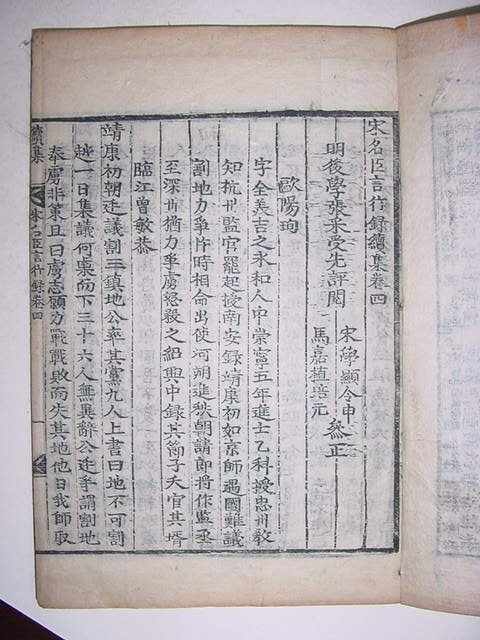 宋名臣言行録續集卷四
明後學張采受先評閱
宋學顯令申
馬嘉植培元
參正
歐陽珣
字全義吉之永和人中崇寧五年進士乙科授忠州教
知杭州監官罷起授南安録靖康初如京師遇國難議
割地力爭片時相命出使河朔進秩朝請郎將作監丞
至深州猶力爭虜怒殺之紹興中録其節子夭官其壻
臨江曾敏恭
靖康初朝廷議割三鎮地公率其黨九人上書曰地不可割
越一日集議何㮚而下三十六人無異辭公廷爭謂割地
奉虜非策且曰虜志願力戰戰敗而失其地他日我師取
續集
宋名臣言行録卷四